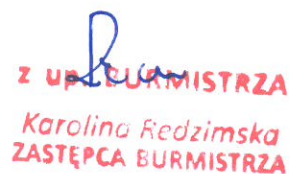 z up. BURMISTRZA
Karolina Redzimska
ZASTĘPCA BURMISTRZA